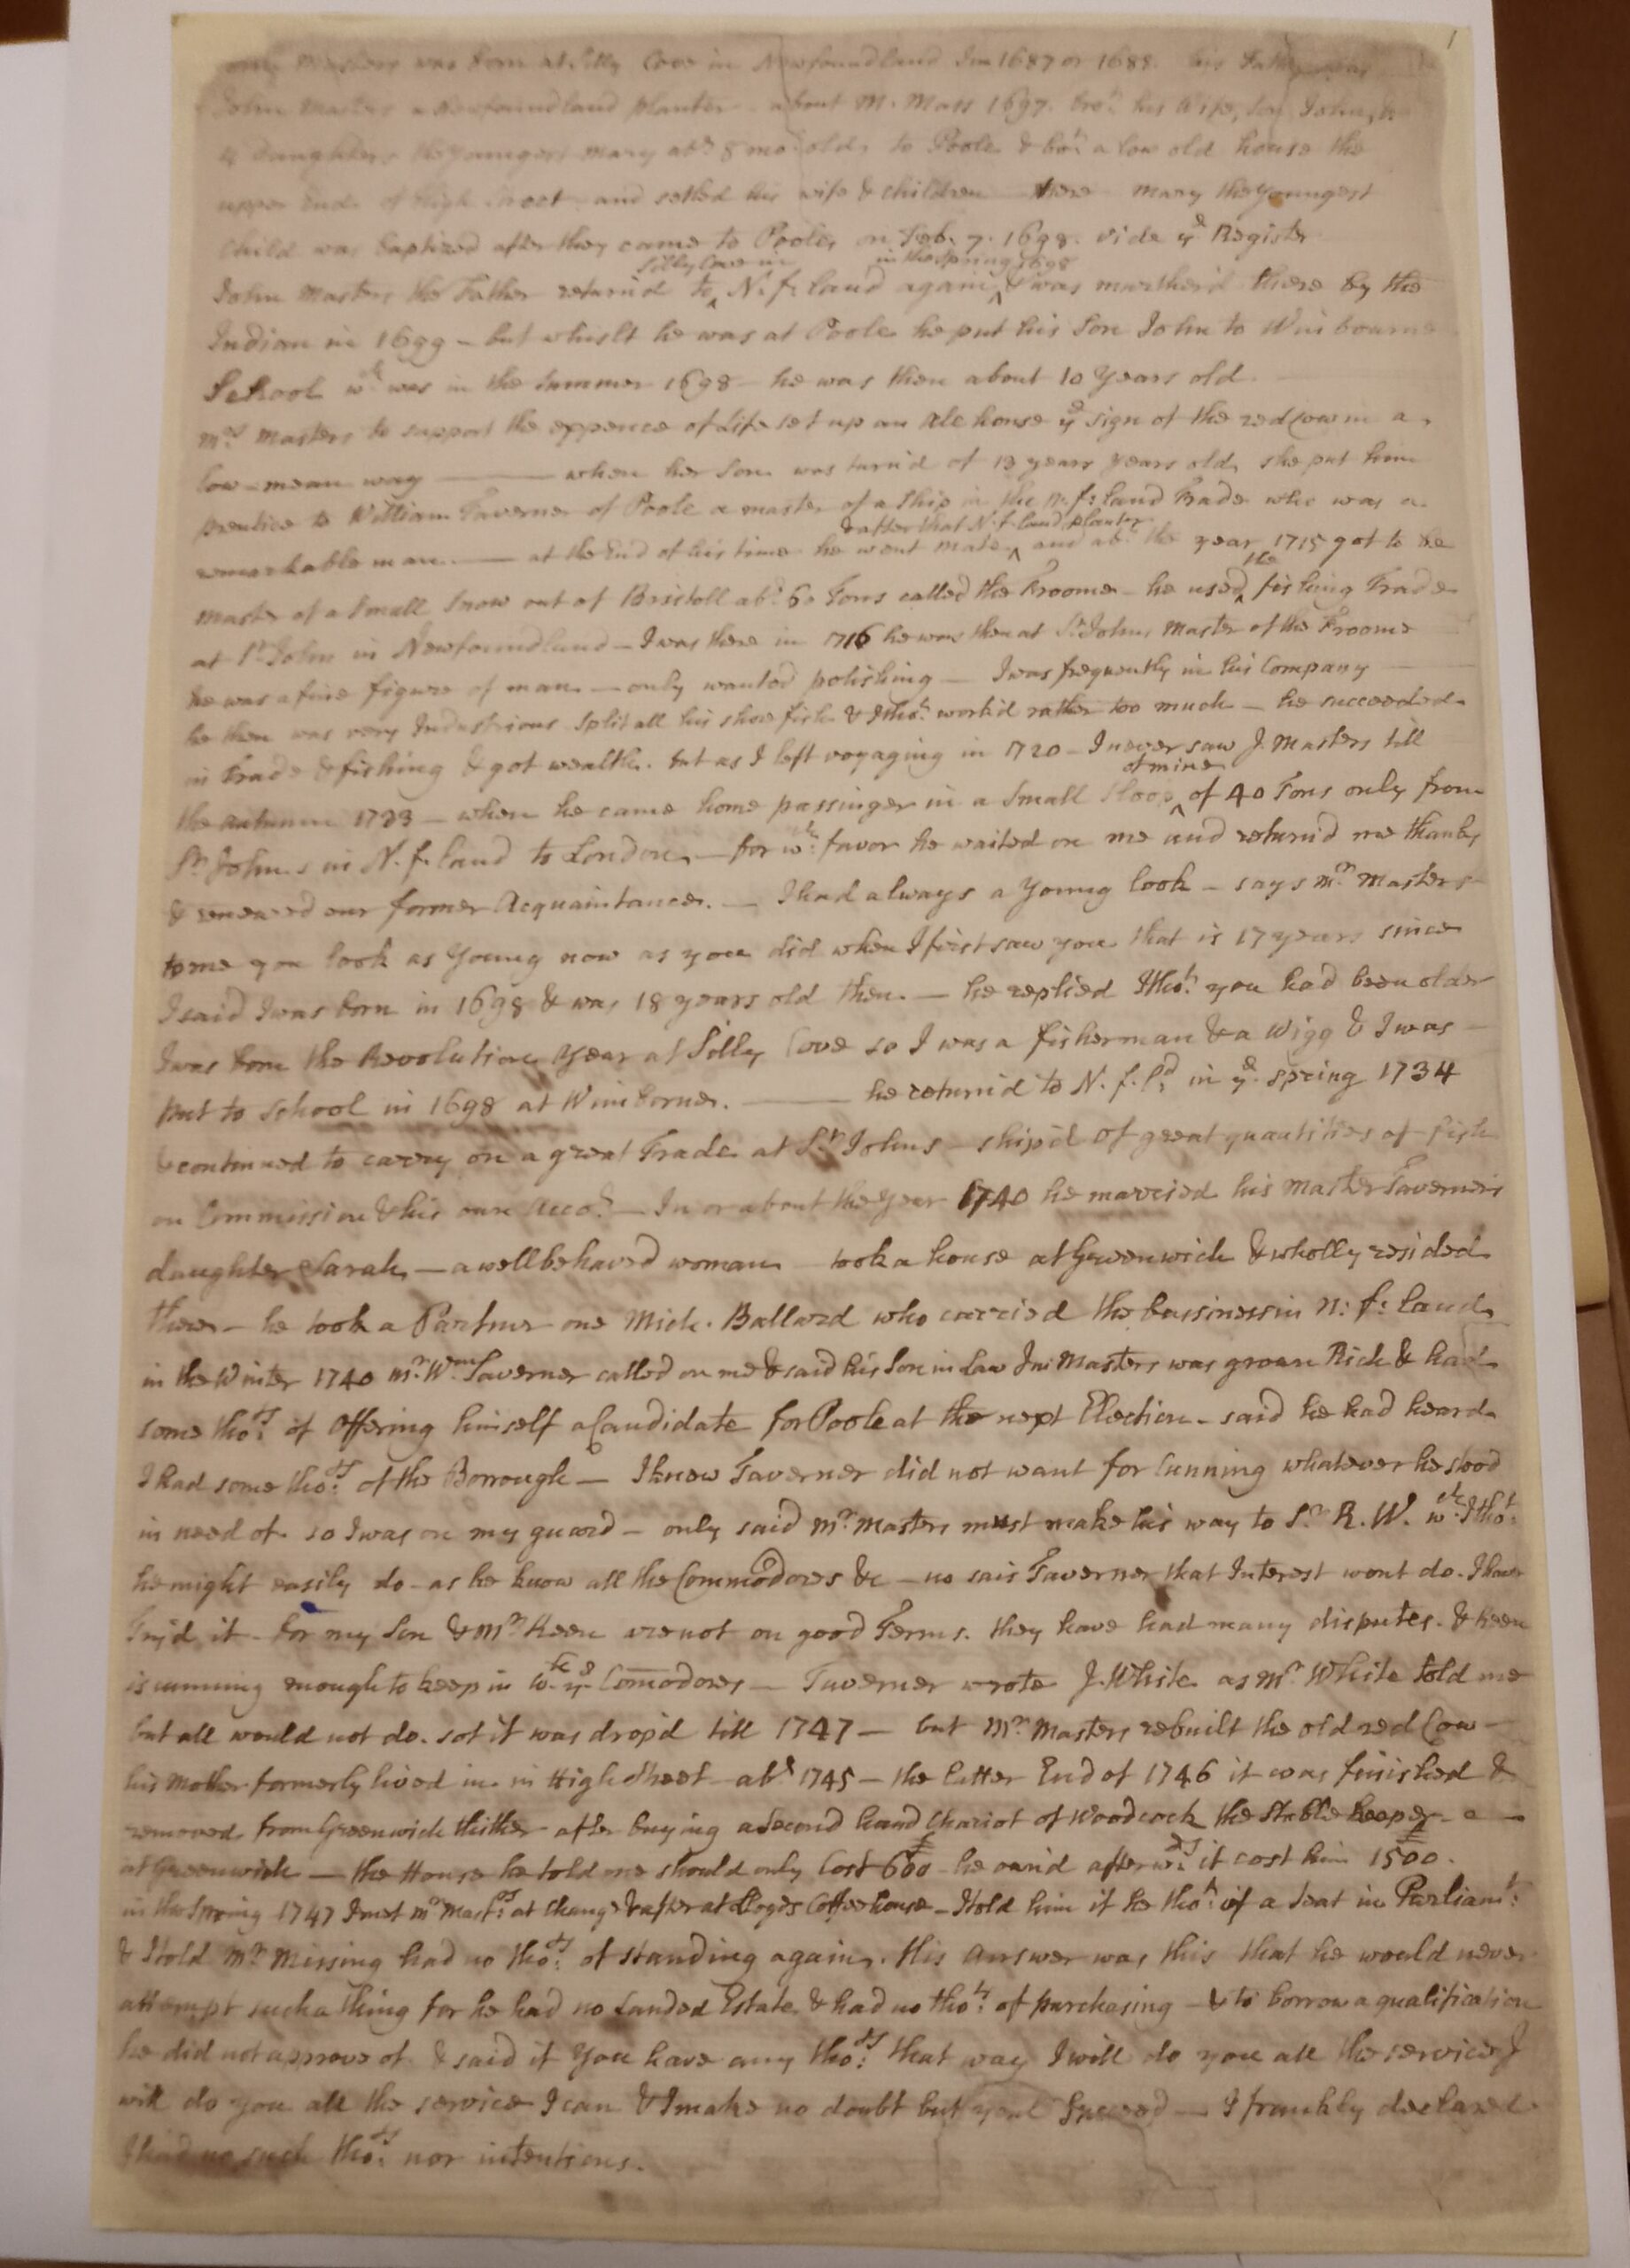 1
Masters was born at Silly Cove in Newfoundland In 1687 or 1688. his Father was
John Masters a Newfoundland planter - about M. Mass 1697. bro:t his Wife, Son John, &
4 Daughters the youngest Mary ab:t 8 mo: old, to Poole & bo:t a low old house the
upper End of High Street and setled his wife & children there Mary the Youngest
Child was baptized after they came to Poole, on Feb. 7. 1698. vide ye Register
Silly Cove in in the Spring 1698
John Masters the Father return'd to ^ N. f. land again ^ & was murther'd there by the
Indian in 1699 - but whislt he was at Poole he put his Son John to Winbourne
School wch was in the Summer 1698 - he was then about 10 Years old.
Mrs Masters to support the expence of Life set up an Ale house ye sign of the red Cow in a
low - mean way —— when her Son was turn'd of 13 years years old, she put him
prentice to William Taverner of Poole a master of a Ship in the N. f: land Trade who was a
& after that N. f. land planter
remarkable man. — at the End of his time he went mate ^ and ab:t the year 1715 got to be
the
master of a Small Snow out of Bristoll ab:t 60 Tons called the Froome - he used ^ fishing Trade
at St John in Newfoundland - I was there in 1716 he was then at St Johns Master of the Froome
he was a fine figure of man - only wanted polishing - I was frequently in his Company
he then was very Industrious Split all his shore fish & I tho:t work'd rather too much - he succeeded
in Trade & fishing & got wealth. but as I left voyaging in 1720 - I never saw J. Masters till
of mine
the autumn 1733 - when he came home passinger in a Small Sloop ^ of 40 Tons only from
St Johns in N. f. land to London, - for wch favor he waited on me and return'd me thanks
& renewed our former Acquaintance. - I had always a Young look - says Mr Masters
to me you look as Young now as you did when I first saw you that is 17 years since
I said I was born in 1698 & was 18 years old then. - he replied I tho:t you had been older
I was born the Revolution Year at Silly Cove so I was a fisherman & a Wigg & I was
put to School in 1698 at Winborne. —— he return'd to N. f. Ld in ye spring 1734
& continued to carry on a great Trade at St Johns - ship'd of great quantities of fish
on Commission & his own Acco:t - In or about the Year 1740 he married his Master Taverners
daughter Sarah, - a well behaved woman took a house at Greenwich & wholly resided
there - he took a Partner one Mich. Ballard who carried the bussiness in N: f: land
in the Winter 1740 Mr Wm Taverner called on me & said his Son in Law Jn Masters was grown Rich & had
some tho:ts of Offering himself a Candidate for Poole at the next Election - said he had heard
I had some tho:ts of the Borrough - I knew Taverner did not want for Cunning whatever he stood
in need of. so I was on my guard - only said Mr Masters must make his way to Sr R. W. wch I tho:t
he might easily do - as he know all the Commodores &c - no sais Taverner that Interest wont do. I have
Try'd it. for my Son & Mr Keen are not on good Terms. they have had many disputes. & Keen
is cunning enough to keep in wth ye Comodores - Taverner wrote J. White as Mr White told me
but all would not do. sot it was drop'd till 1747 - but Mr Masters rebuilt the old red Cow
his Mother formerly lived in. in High Street ab:t 1745 - the latter End of 1746 it was finished &
removed from Greenwich thither - after buying a Second hand Chariot of Woodcock the Stable keeper
at Greenwich - the House he told me should only Cost £600 he own'd afterwds it cost him £1500.
in the Spring 1747 I met Mr Masters at Change & after at Lloyds Coffee house - I told him if he tho:t of a Seat in Parliamt:
& I told Mr Missing had no tho:ts of standing again. His Answer was this that he would never
attempt such a thing for he had no Landed Estate, & had no tho:ts of purchasing - & to borrow a qualification
he did not approve of & said if You have any tho:ts that way I will do you all the service I
will do you all the service I can & I make no doubt but youl Succeed - I frankly declared
I had no such tho:ts nor intentions.